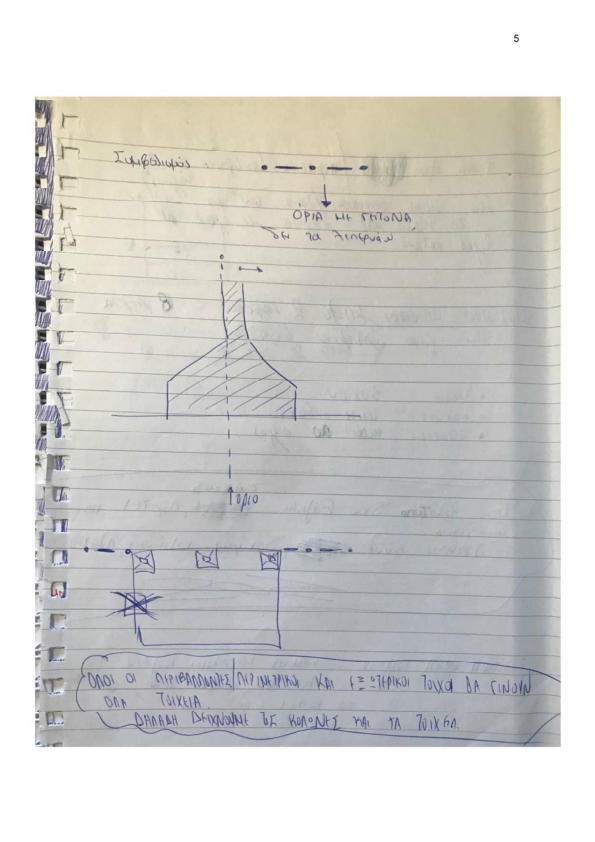 5
Συμβολισμός
ΌΡΙΑ ΜΕ ΓΕΙΤΟΝΑ
δεν τα λεπερνάω
όριο
ΟΛΟΙ ΟΙ ΠΕΡΙΒΑΛΛΟΝΤΕΣ/ΠΕΡΙΜΕΤΡΙΚΟΙ ΚΑΙ ΕΞΩΤΕΡΙΚΟΙ ΤΟΙΧΟΙ ΘΑ ΓΙΝΟΥΝ
ΟΛΑ ΤΟΙΧΕΙΑ
ΔΗΛΑΔΗ ΔΕΙΧΝΟΥΜΕ ΤΙΣ ΚΟΛΟΝΕΣ ΚΑΙ ΤΑ ΤΟΙΧΕΙΑ.